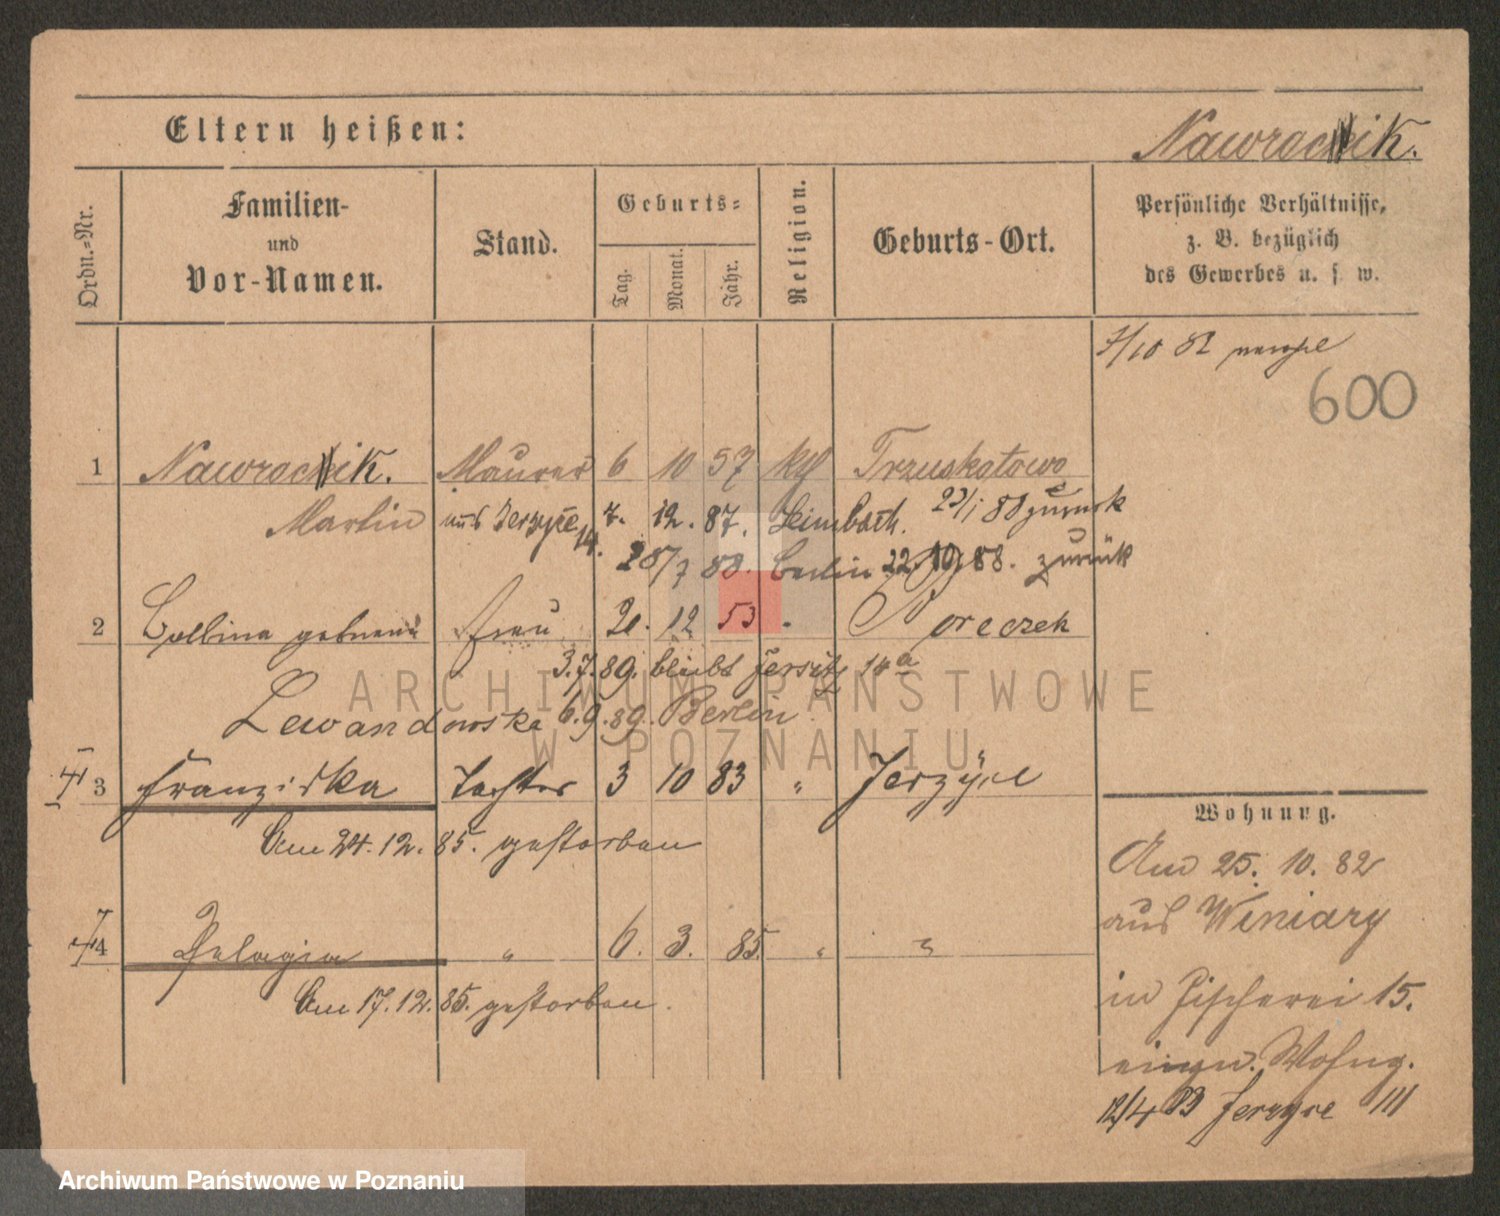 Eltern heißen:
Nawrocik.
Ordn.-Nr.
Familien-
und
Vor-Namen.
Stand.
Geburts-
Tag.
Monat.
Jahr.
Religion.
Geburts-Ort.
Persönliche Verhältnisse,
z. B. bezüglich
des Gewerbes u. s. w.
7/10
600
1 Nawrocik. Maurer 6 10 57 kth Trzuskotowo
Martin aus Jerzyce 7. 12. 87. Leimbach. 23/1 88 zurück
14. 28/7 88. Berlin 22. 10. 88. zurück
2 Balbina geborene Frau 21. 12 53 " Poreczek
3.7.89. bleibt Jersitz 14a
Lewandowska 6.9.89. Berlin.
3 Franziska Tochter 3 10 83 " Jerzyce
Am 24.12.85. gestorben
4 Pelagia " 6. 3. 85. " "
Am 17.12.85. gestorben.
Wohnung.
Am 25. 10. 82
aus Winiary
in Fischerei 15.
eigen. Wohng.
12/4 83 Jerzyce 111
ARCHIWUM PAŃSTWOWE
W POZNANIU
Archiwum Państwowe w Poznaniu